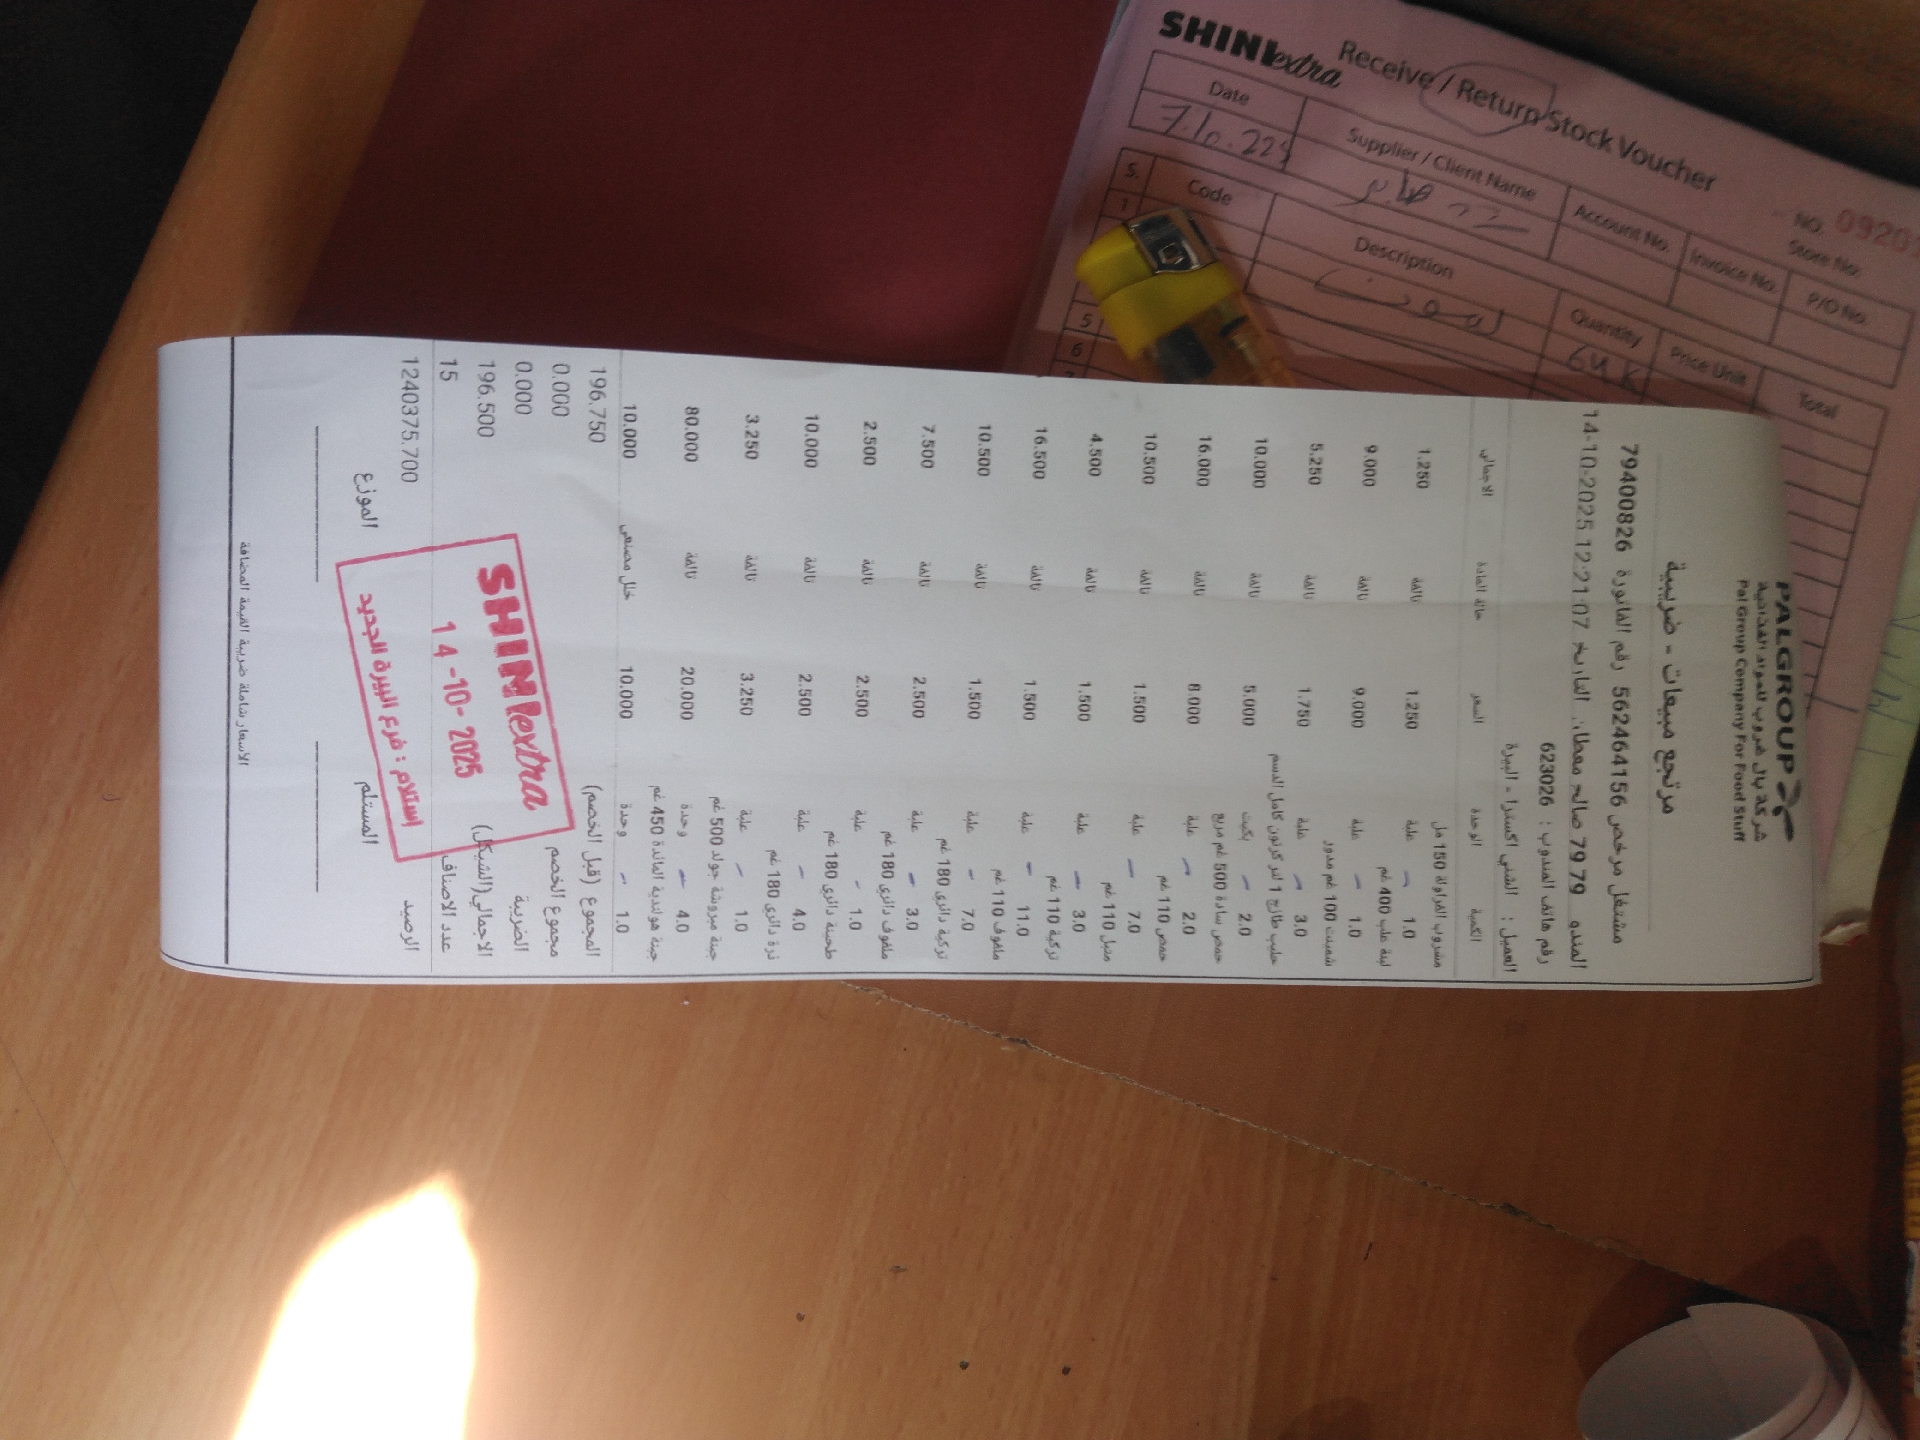 PALGROUP
شركة بال غروب للمواد الغذائية
Pal Group Company For Food Stuff
مرتجع مبيعات - ضريبية
مشتغل مرخص 562464156 رقم الفاتورة 79400826
المندو 79 79 صالح معطان التاريخ 14-10-2025 12:21:07
رقم هاتف المندوب : 623026
العميل : الشني اكسترا - البيرة
الكمية الوحدة السعر حالة المادة الاجمالي
مشروب الفراولة 150 مل
1.0 علبة 1.250 تالفة 1.250
لبنة علب 400 غم
1.0 علبة 9.000 تالفة 9.000
شمينت 100 غم مدور
3.0 علبة 1.750 تالفة 5.250
حليب طازج 1 لتر كرتون كامل الدسم
2.0 بكيت 5.000 تالفة 10.000
حمص سادة 500 غم مربع
2.0 علبة 8.000 تالفة 16.000
حمص 110 غم
7.0 علبة 1.500 تالفة 10.500
متبل 110 غم
3.0 علبة 1.500 تالفة 4.500
تركية 110 غم
11.0 علبة 1.500 تالفة 16.500
ملفوف 110 غم
7.0 علبة 1.500 تالفة 10.500
تركية دائري 180 غم
3.0 علبة 2.500 تالفة 7.500
ملفوف دائري 180 غم
1.0 علبة 2.500 تالفة 2.500
طحينة دائري 180 غم
4.0 علبة 2.500 تالفة 10.000
ذرة دائري 180 غم
1.0 علبة 3.250 تالفة 3.250
جبنة مبروشة جولد 500 غم
4.0 وحدة 20.000 تالفة 80.000
جبنة هولندية المائدة 450 غم
1.0 وحدة 10.000 خلل مصنعي 10.000
المجموع (قبل الخصم) 196.750
مجموع الخصم 0.000
الضريبة 0.000
الاجمالي(الشيكل) 196.500
عدد الاصناف 15
الرصيد 1240375.700
المستلم الموزع
الاسعار شاملة ضريبة القيمة المضافة
SHINIextra
14-10-2025
استلام : فرع البيرة الجديد
SHINIextra Receive / Return Stock Voucher
NO. 0920
Store No.
Date Supplier / Client Name Account No. Invoice No. P/O No.
S. Code Description Quantity Price Unit Total
1
5
6